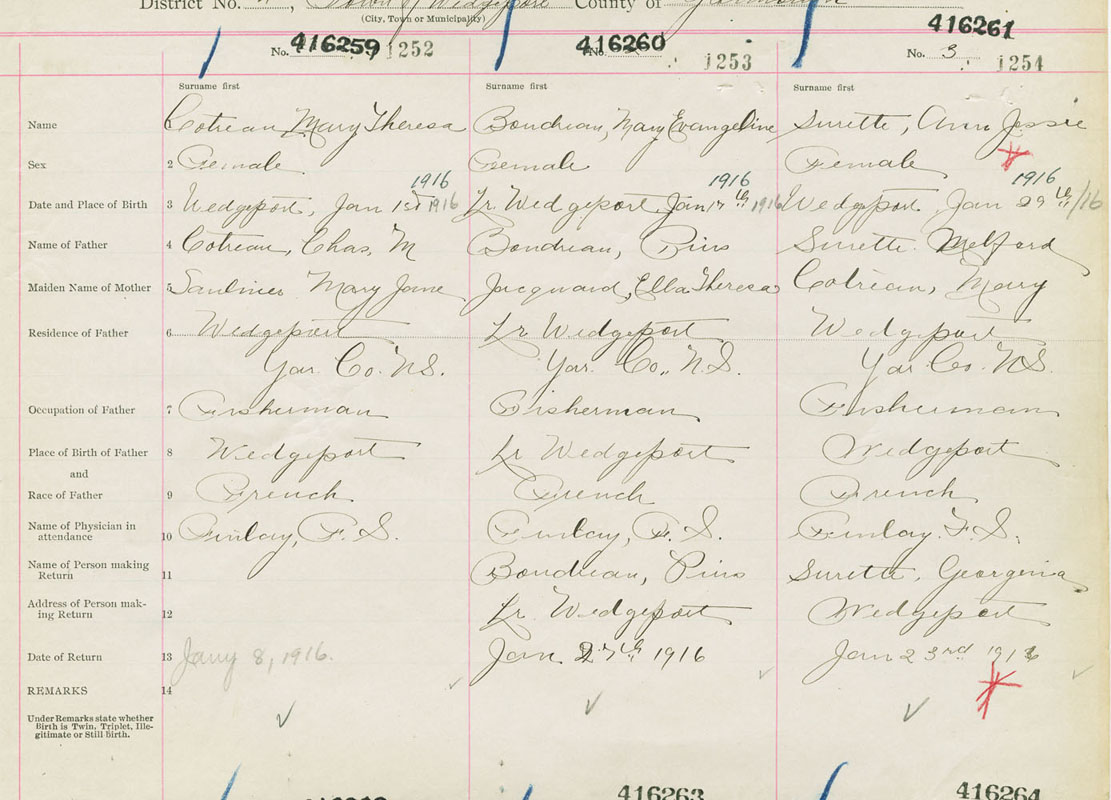 District No. Town of Wedgeport County of Yarmouth
(City, Town or Municipality)
416259 416260 416261
No. 1252 No. 1253 No. 3 1254
Surname first Surname first Surname first
Name 1 Cotrean Mary Theresa Boudrean, Mary Evangeline Surette, Ann Jessie
Sex 2 Female Female Female
1916 1916 1916
Date and Place of Birth 3 Wedgeport, Jan 1st 1916 Lr. Wedgeport, Jan 17th 1916 Wedgeport, Jan 29th/16
Name of Father 4 Cotrean, Chas, M Boudrean, Pius Surette Melford
Maiden Name of Mother 5 Mary Jane Jacquard, Ella Theresa Cotrean, Mary
Residence of Father 6 Wedgeport Lr Wedgeport Wedgeport
Yar. Co. N.S. Yar. Co., N.S. Yar. Co. N.S.
Occupation of Father 7 Fisherman Fisherman Fisherman
Place of Birth of Father 8 Wedgeport Lr Wedgeport Wedgeport
and
Race of Father 9 French French French
Name of Physician in
attendance 10 Finlay, F. S. Finlay, F. S. Finlay. F. S.
Name of Person making
Return 11 Boudrean, Pius Surette, Georgenia
Address of Person mak-
ing Return 12 Lr. Wedgeport Wedgeport
Date of Return 13 Jany 8, 1916. Jan 27th 1916 Jan 23rd 1916
REMARKS 14
Under Remarks state whether
Birth is Twin, Triplet, Ille-
gitimate or Still Birth.
416263 416264